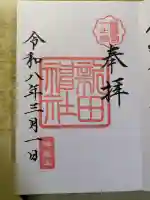 奉拝
新田神社
令和八年三月一日